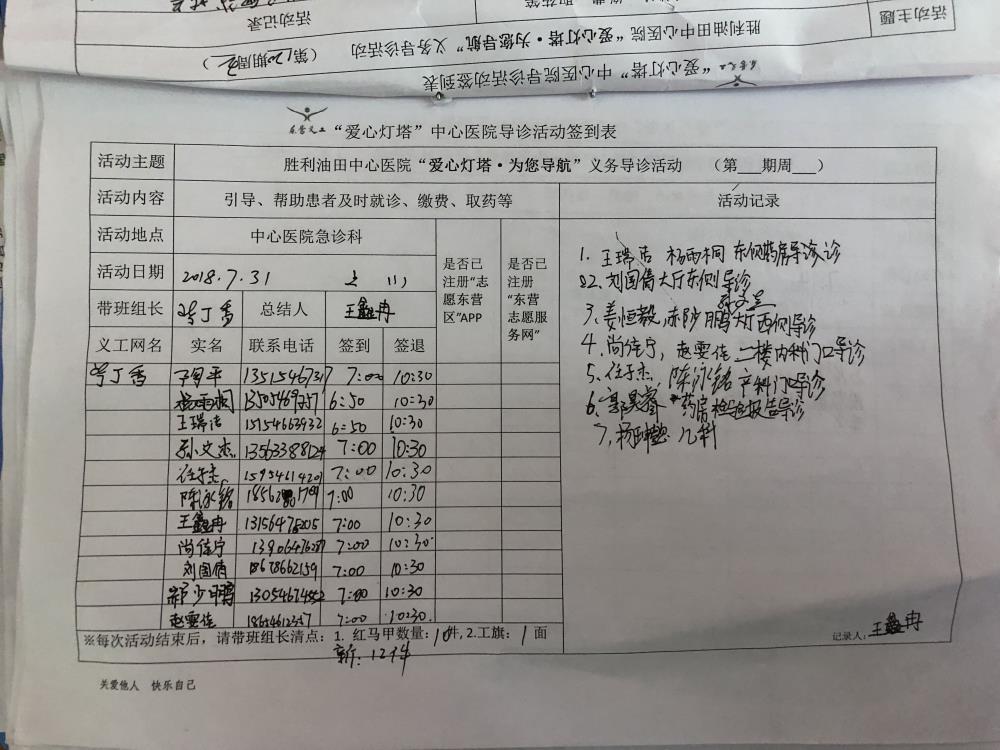 活动记录
胜利油田中心医院“爱心灯塔·为您导航”义务导诊活动 （第120期周2）
活动主题
“爱心灯塔”中心医院导诊活动签到表
东营义工 “爱心灯塔”中心医院导诊活动签到表
活动主题 胜利油田中心医院“爱心灯塔·为您导航”义务导诊活动 （第___期周___）
活动内容 引导、帮助患者及时就诊、缴费、取药等 活动记录
活动地点 中心医院急诊科
活动日期 2018.7.31
是否已注册“志愿东营区”APP
是否已注册“东营志愿服务网”
带班组长 丁香 总结人 王鑫冉
义工网名 实名 联系电话 签到 签退
丁香 平 13515467317 7:00 10:30
杨雨桐 13505469757 6:50 10:30
王瑞洁 15154663932 6:50 10:30
孙文杰 7:00 10:30
任于杰 15954114201 7:00 10:30
陈泳铭 7:00 10:30
王鑫冉 13156478205 7:00 10:30
尚佳宁 7:00 10:30
刘国倩 18678662159 7:00 10:30
少鹏 7:00 10:30
赵雯佳 7:00 10:30
1. 王瑞洁 杨雨桐 东侧药房导诊
2. 刘国倩 大厅东侧导诊
3. 姜恒毅, 少鹏 大厅西侧导诊
4. 尚佳宁, 赵雯佳 二楼内科门口导诊
5. 任于杰, 陈泳铭 产科门口导诊
6. 郭昊睿 药房检验报告导诊
7. 杨 儿科
※每次活动结束后，请带班组长清点：1. 红马甲数量：10件, 2.工旗： 1 面
新：12件
记录人：王鑫冉
关爱他人 快乐自己